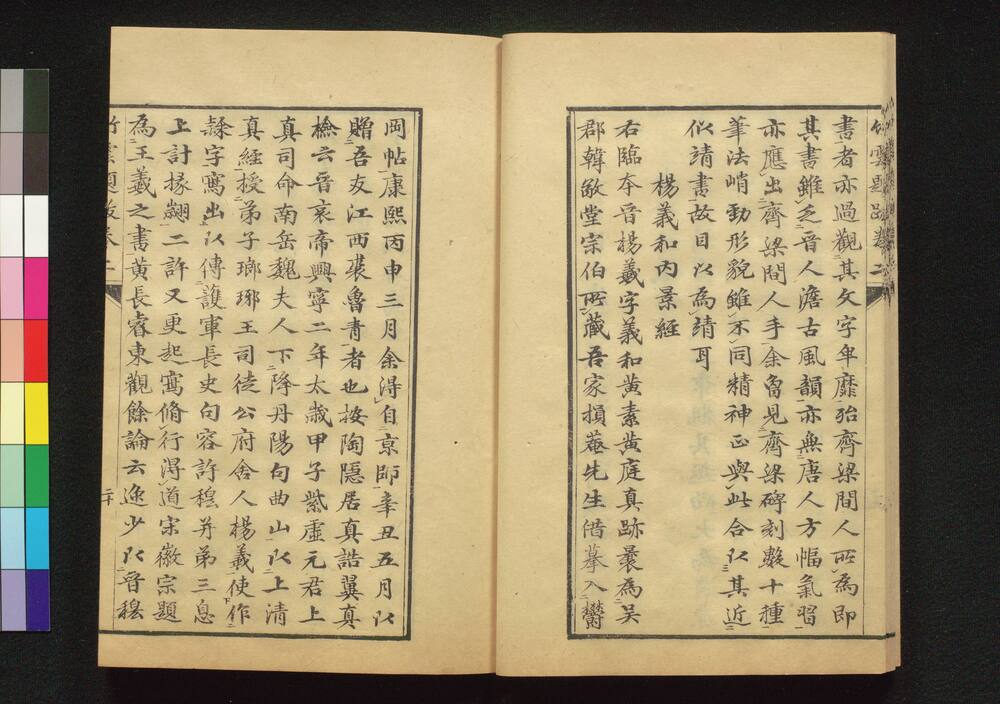 竹雲題跋卷二
書者亦過觀其文字卑靡殆齊梁間人所為即
其書雖乏晉人澹古風韻亦無唐人方幅氣習
亦應出齊梁間人手余曾見齊梁碑刻數十種
筆法峭勁形貌雖不同精神正與此合以其近
似請書故目以為請耳
楊義和內景經
右臨本晉楊羲字義和黃素黃庭真跡曩為吳
郡韓敏堂宗伯所藏吾家損菴先生借摹入鬱
岡帖康熙丙申三月余得自京師辛丑五月以
贈吾友江西裘魯青者也按陶隱居真誥翼真
檢云晉哀帝興寧二年太歲甲子紫虛元君上
真司命南岳魏夫人下降丹陽句曲山以上清
真經授弟子瑯琊王司徒公府舍人楊羲使作
隸字寫出以傳護軍長史句容許穆并弟三息
上計掾翽二許又更起寫脩行得道宋徽宗題
為王羲之書黃長睿東觀餘論云逸少以晉穆
竹雲題跋卷二
二十